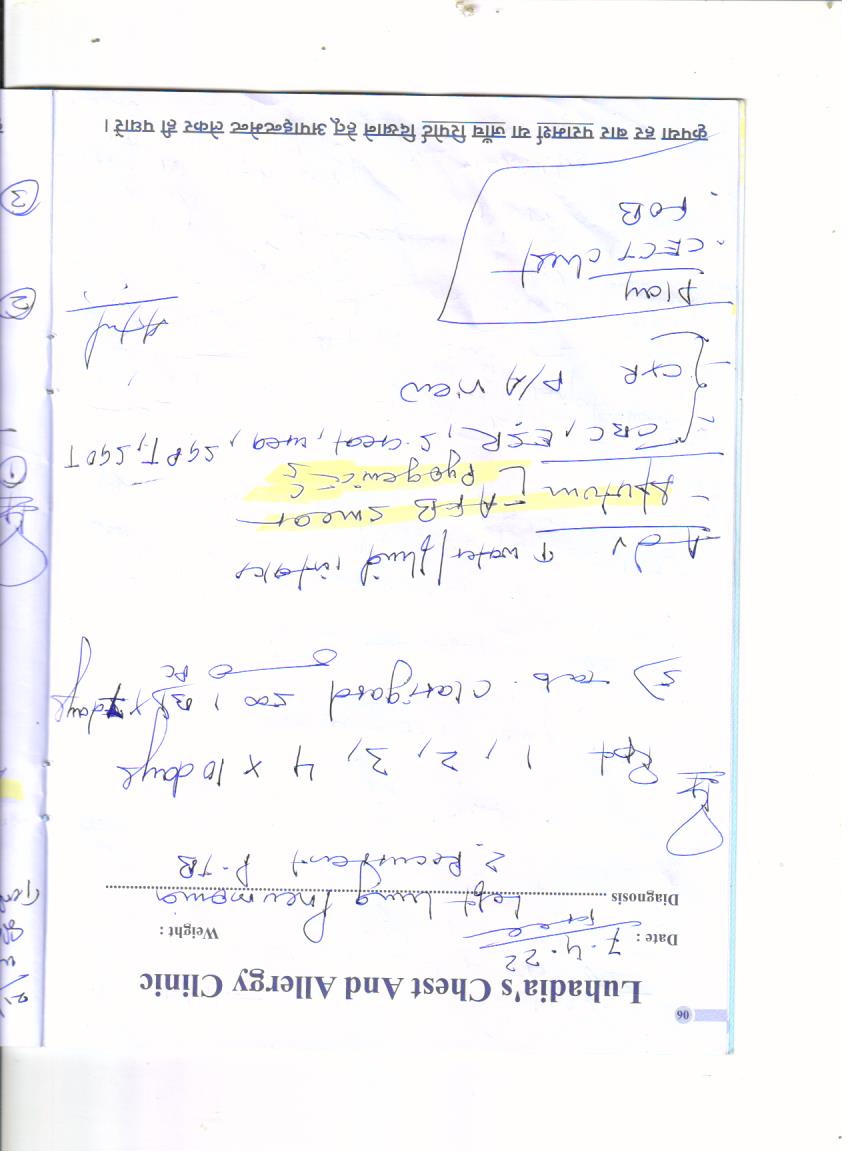 06
Luhadia's Chest And Allergy Clinic
Date : 7.4.22 Weight :
free
Diagnosis Left lung Pneumonia
2. Recurrent P-TB
Rx
Rpt 1, 2, 3, 4 x 10 days
5) tab. Clarigard 500, BD x 7 days
PC
Adv ↑ water/fluid intake
- Sputum - AFB smear
Pyogenic C S
- CBC, ESR, S. creat, urea, SGPT, SGOT
- CXR P/A view
Plan
. CECT Chest
. FOB
कृपया हर बार परामर्श या जाँच रिपोर्ट दिखाने हेतु अपाइन्टमेन्ट लेकर ही पधारें।
2
3